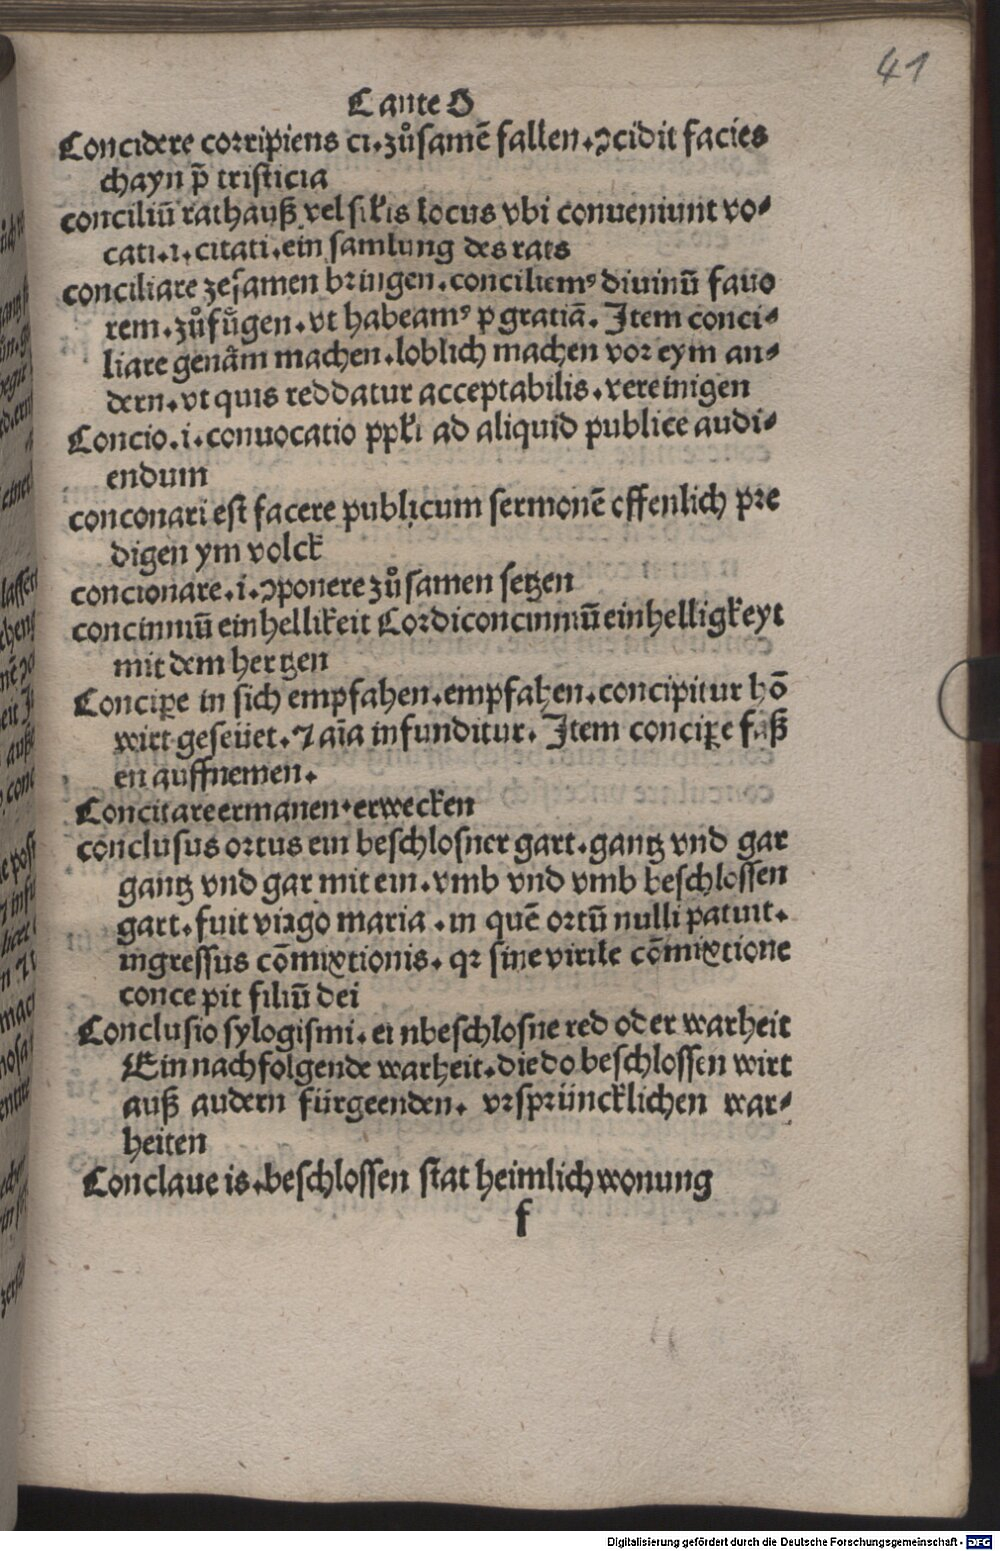 41
C ante O
Concidere corripiens ci.zůsamē fallen.ↄcidit facies
chayn p̄ tristicia
conciliū rathauß vel sił'is locus vbi conueniunt vo⸗
cati.i.citati.ein samlung des rats
conciliare zesamen bringen.conciliemꝰ diuinū fauo
rem.zůfügen.vt habeamꝰ p gratiā. Item conci⸗
liare genäm machen.loblich machen vor eym an⸗
dern.vt quis reddatur acceptabilis.vereinigen
Concio.i.conuocatio ppłi ad aliquid publice audi⸗
endum
conconari est facere publicum sermonē offenlich pre
digen ym volck
concionare.i.ↄponere zůsamen setzen
concinniū einhellikeit Cordiconcinniū einhelligkeyt
mit dem hertzen
Concipe in sich empfahen.empfahen.concipitur hō
wirt geseüet.⁊ aīa infunditur. Item concipe faß
en auffnemen.
Concitare ermanen.erwecken
conclusus ortus ein beschlosner gart.gantz vnd gar
gantz vnd gar mit ein.vmb vnd vmb beschlossen
gart.fuit virgo maria.in quē ortū nulli patuit.
ingressus cōmixtionis.qꝛ sine virile cōmixtione
conce pit filiū dei
Conclusio sylogismi.ei nbeschlosne red oder warheit
Ein nachfolgende warheit.die do beschlossen wirt
auß audern fürgeenden. vrsprüncklichen war⸗
heiten
Conclaue is.beschlossen stat heimlich wonung
f
Digitalisierung gefördert durch die Deutsche Forschungsgemeinschaft - DFG